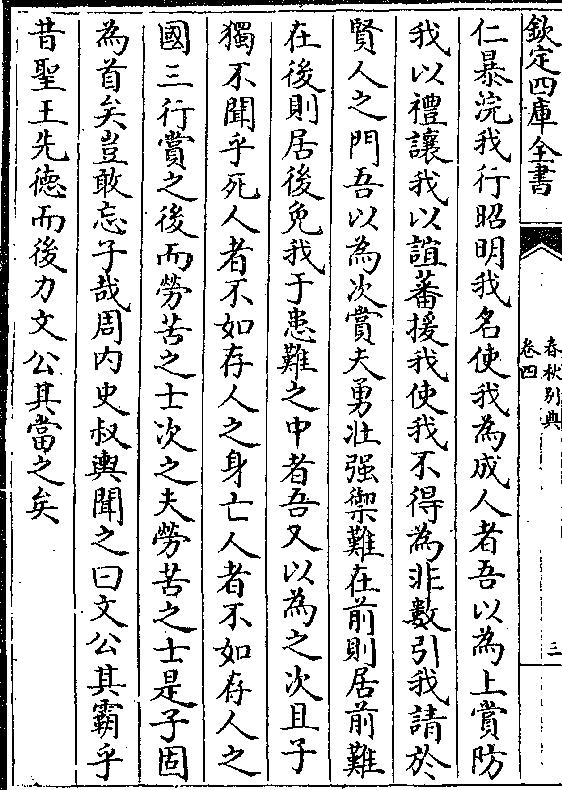 欽定四庫全書
春秋别典
卷四
三
仁暴浣我行昭明我名使我為成人者吾以為上賞防
我以禮讓我以誼蕃援我使我不得為非數引我請於
賢人之門吾以為次賞夫勇壯强禦難在前則居前難
在後則居後免我于患難之中者吾又以為之次且子
獨不聞乎死人者不如存人之身亡人者不如存人之
國三行賞之後而勞苦之士次之夫勞苦之士是子固
為首矣豈敢忘子哉周内史叔輿聞之曰文公其霸乎
昔聖王先徳而後力文公其當之矣